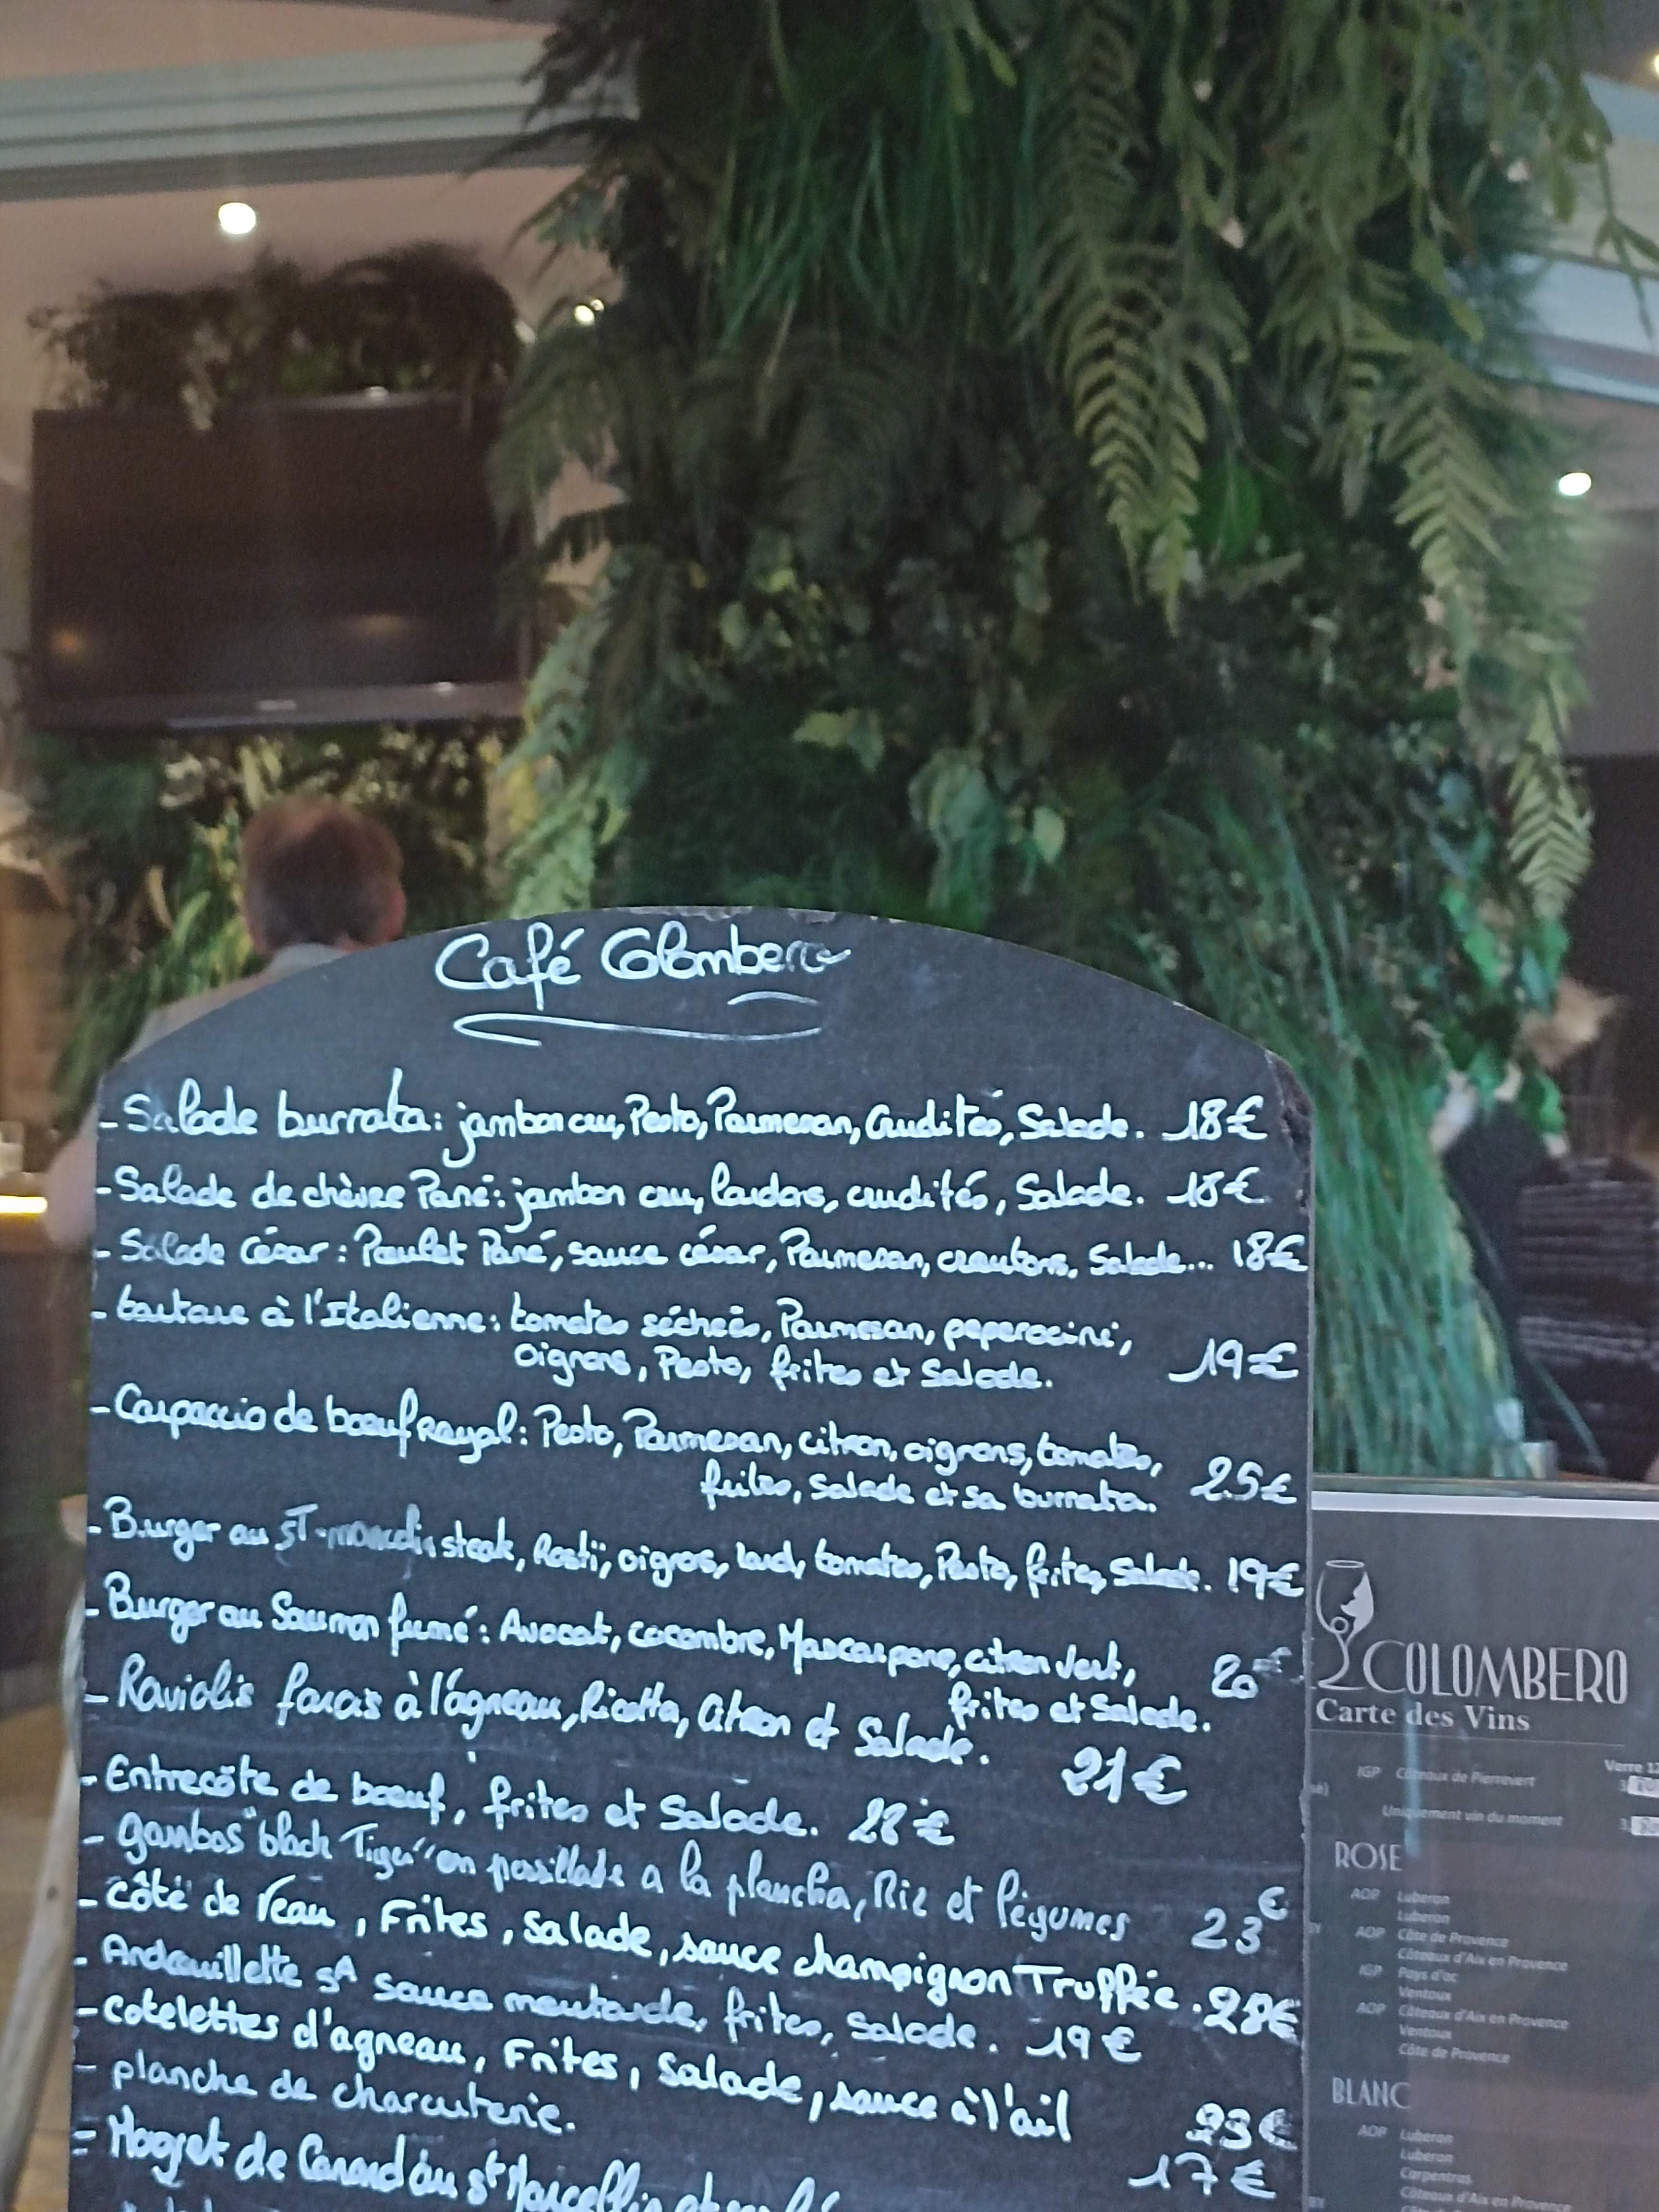 Café Colombero
- Salade burrata: jambon cru, Pesto, Parmesan, Crudités, Salade. 18€
- Salade de chèvre Pané: jambon cru, lardons, crudités, Salade. 18€
- Salade César: Poulet Pané, sauce césar, Parmesan, croutons, Salade... 18€
- tartare à l'Italienne: tomates séchées, Parmesan, peperocini,
oignons, Pesto, frites et Salade. 19€
- Carpaccio de boeuf Royal: Pesto, Parmesan, citron, oignons, tomates,
frites, Salade et sa burrata. 25€
- Burger au ST-marcelin steak, Rosti, oignos, lard, tomates, Pesto, frites, Salade. 19€
- Burger au Saumon fumé: Avocat, cocombre, Mascarpone, citron vert,
frites et Salade. 20€
- Raviolis farcis à l'agneau, Ricotta, Citron et Salade. 21€
- Entrecôte de boeuf, frites et Salade. 28€
- gambas "black Tiger" en persillade a la plancha, Riz et légumes 23€
- côte de Veau, Frites, Salade, sauce champignon Truffée. 28€
- Andouillette 5A sauce moutarde, frites, Salade. 19€
- cotelettes d'agneau, Frites, Salade, sauce à l'ail 23€
- planche de charcuterie. 17€
- Magret de Canard au st Marcellin et
COLOMBERO
Carte des Vins
Verre 12
IGP Côteaux de Pierrevert
Uniquement vin du moment
ROSE
AOP Luberon
Luberon
AOP Côte de Provence
Côteaux d'Aix en Provence
IGP Pays d'oc
Ventoux
AOP Côteaux d'Aix en Provence
Ventoux
Côte de Provence
BLANC
AOP Luberon
Luberon
Carpentras
Côteaux d'Aix en Provence